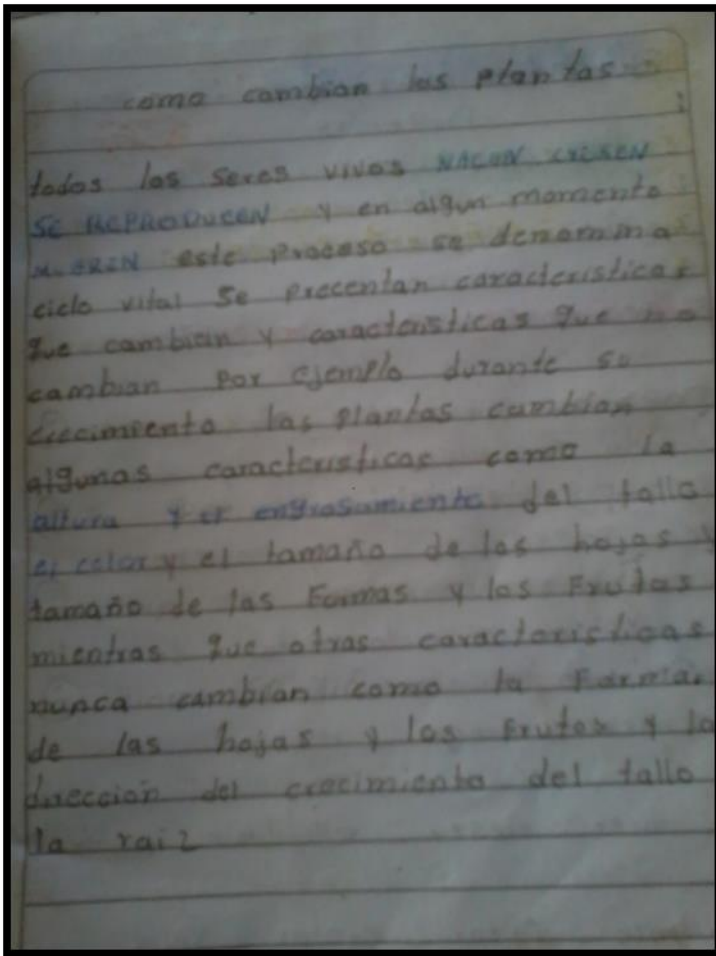 como cambian las plantas
todos los seres vivos NACEN CRECEN
SE REPRODUCEN y en algun momento
MUEREN este Proceso se denomina
ciclo vital Se Precentan caracteristicas
que cambian y caracteristicas que no
cambian Por ejemplo durante su
crecimiento las Plantas cambian
algunas caracteristicas como la
altura y el engrosamiento del tallo
el color y el tamaño de las hojas y
tamaño de las Formas y los Frutos
mientras que otras caracteristicas
nunca cambian como la Forma
de las hojas y los Frutos y la
direccion del crecimiento del tallo
la raiz